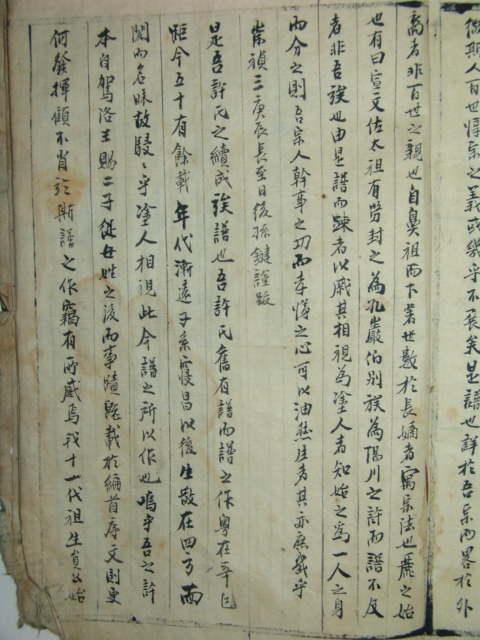 倣斯人百世惇宗之義或幾乎不衰矣是譜也詳於吾宗而畧於外
裔者非百世之親也自鼻祖而下著世數於長嫡者寓宗法也麗之始
也有曰宣文佐太祖有勞封之為孔巖伯別族為陽川之許而譜不及
者非吾族也由是譜而踈者以戚其相視為塗人者知始之為一人之身
而分之則吾宗人幹事之功而孝悌之心可以油然生者其亦庶幾乎
崇禎三庚辰長至日後孫鍵謹跋
是吾許氏之續成族譜也吾許氏舊有譜而譜之作粵在辛巳
距今五十有餘載年代漸遠子系寢昌以後生散在四方而
聞而名昧故駸駸乎塗人相視此今譜之所以作也嗚乎吾之許
本自駕洛王賜二子從母姓之後而事蹟臚載於編首序文則更
何發揮顧不肖於斯譜之作竊有所感焉我十一代祖生員公始